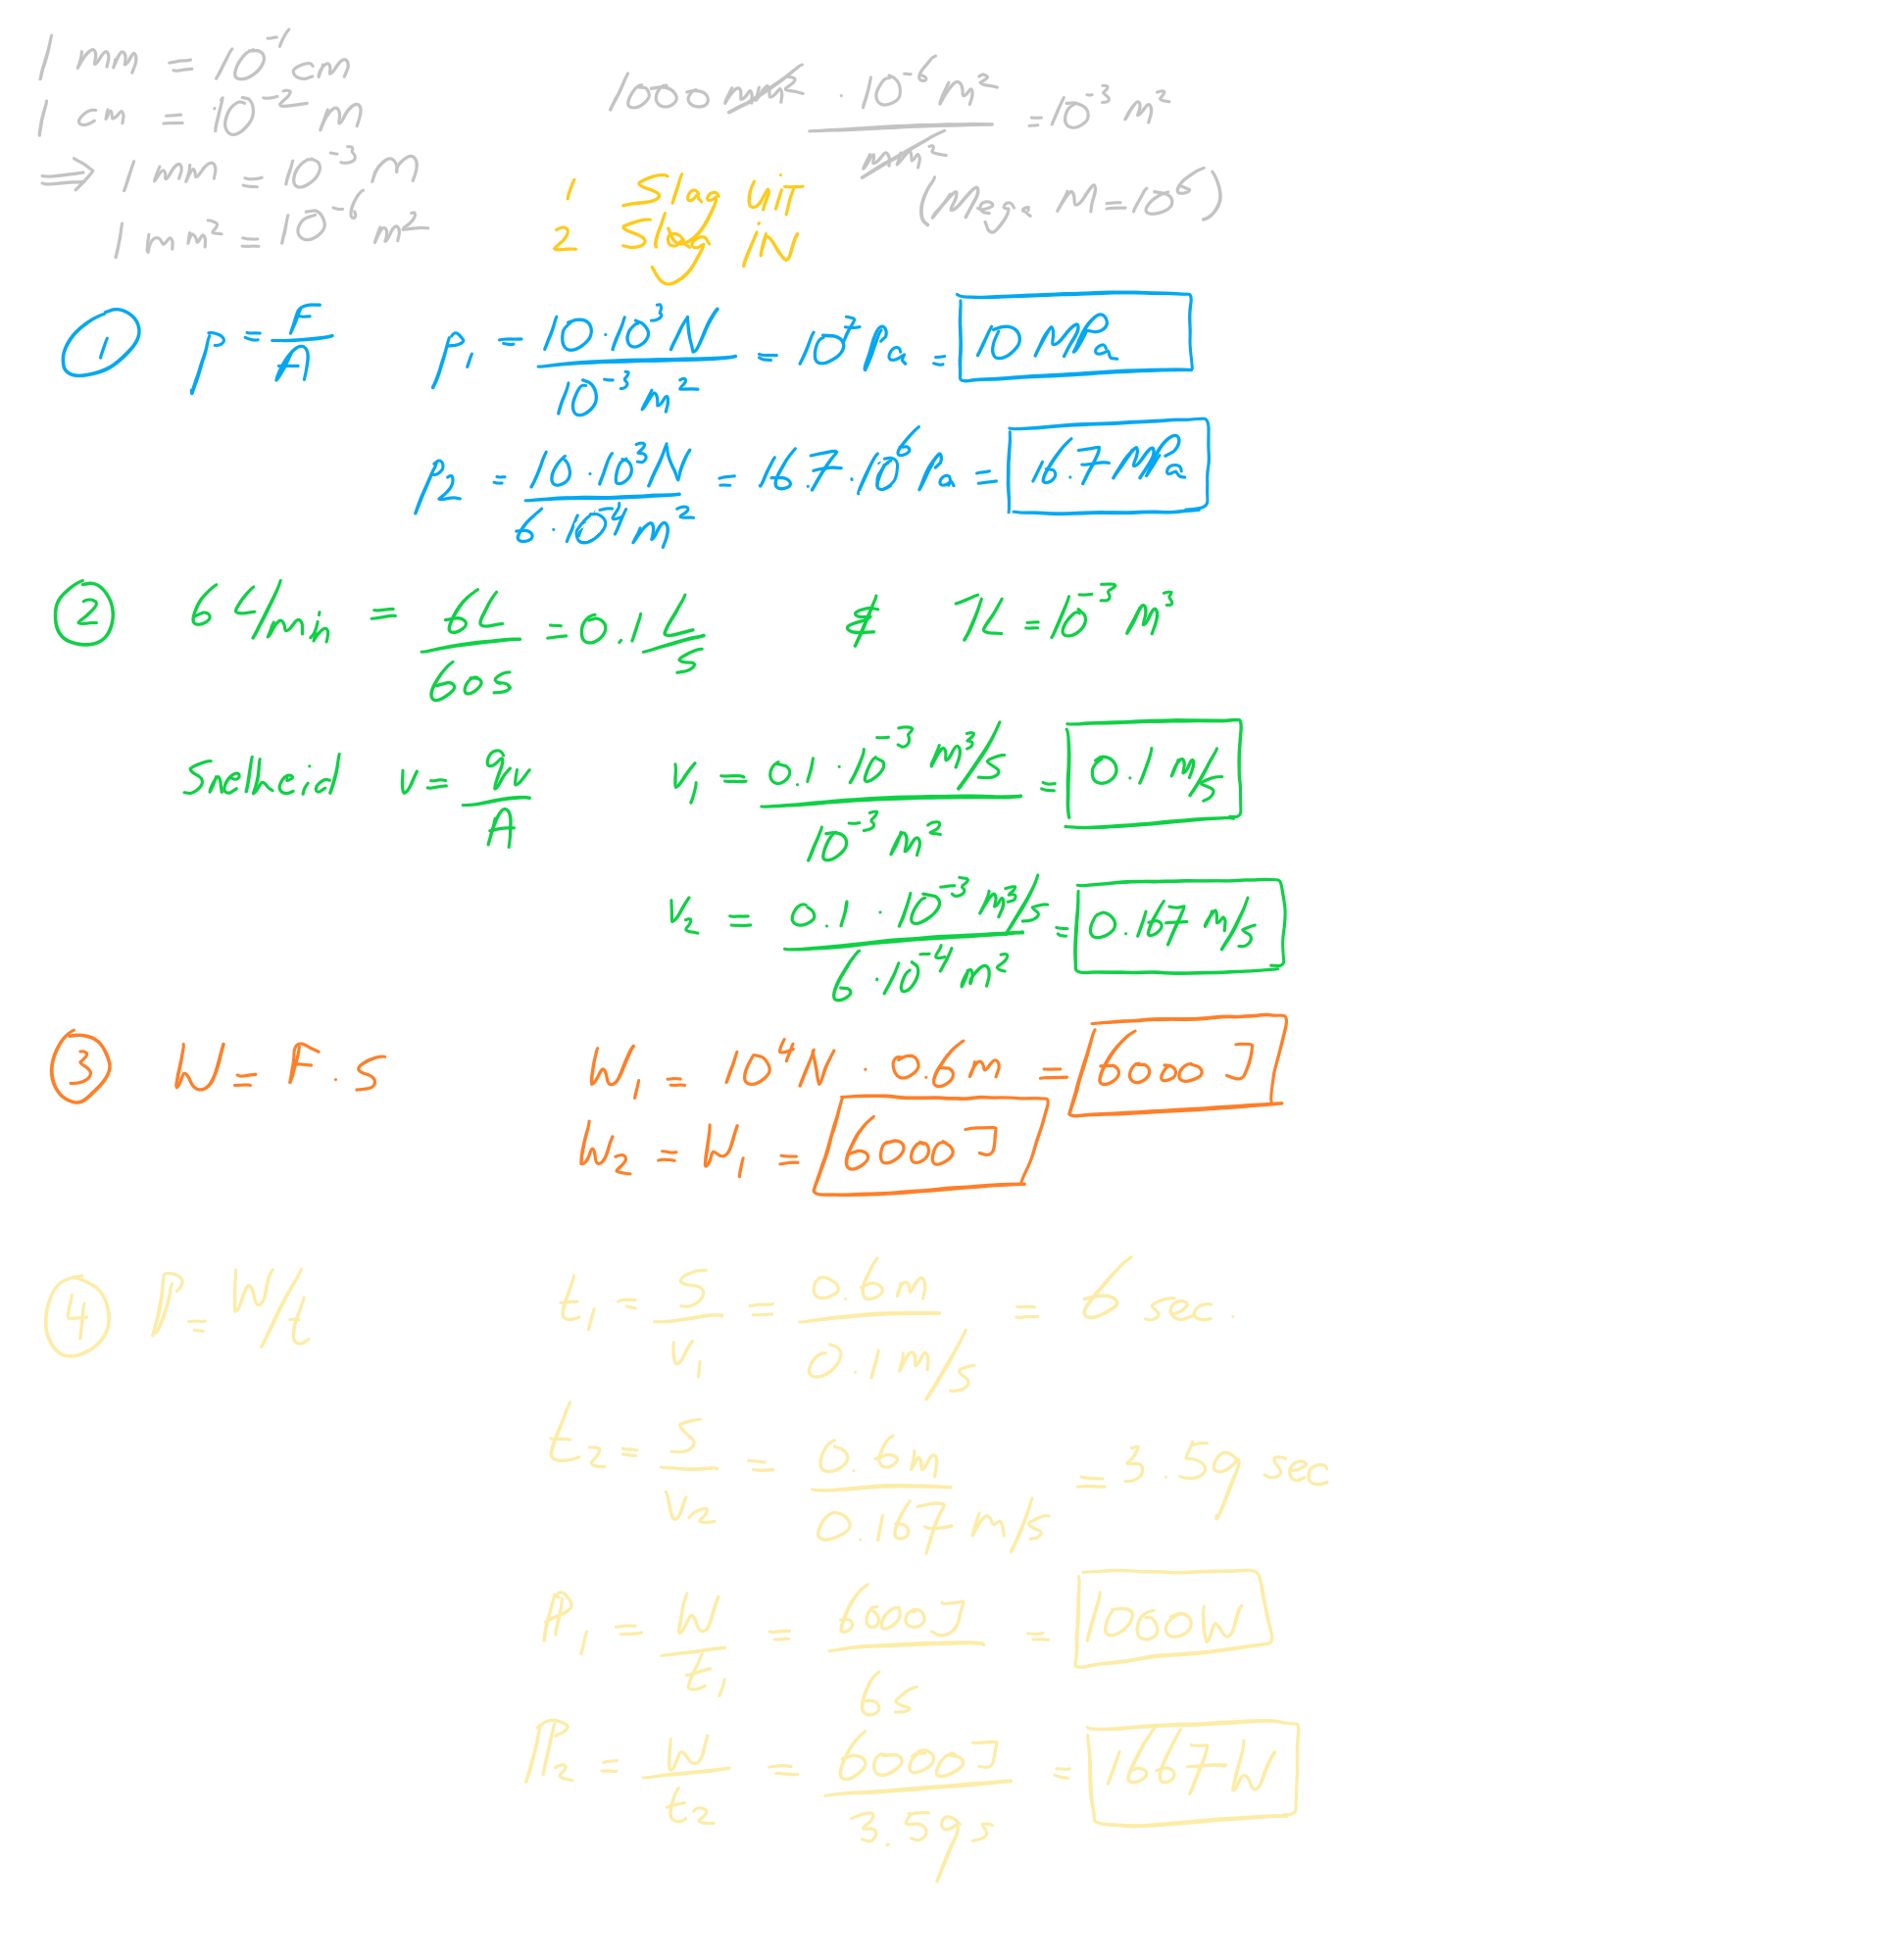 1 mm = 10⁻¹ cm
1 cm = 10⁻² m
⇒ 1 mm = 10⁻³ m
1 mm² = 10⁻⁶ m²
1000 mm² · 10⁻⁶ m² / mm² = 10⁻³ m²
(Mega M = 10⁶)
1 Slag uit
2 Slag in
① p = F/A p₁ = 10·10³ N / 10⁻³ m² = 10⁷ Pa = 10 MPa
p₂ = 10·10³ N / 6·10⁻⁴ m² = 16.7·10⁶ Pa = 16.7 MPa
② 6 L/min = 6L / 60s = 0.1 L/s & 1L = 10⁻³ m³
Snelheid v = qv / A v₁ = 0.1 · 10⁻³ m³/s / 10⁻³ m² = 0.1 m/s
v₂ = 0.1 · 10⁻³ m³/s / 6·10⁻⁴ m² = 0.167 m/s
③ W = F · s W₁ = 10⁴ N · 0.6 m = 6000 J
W₂ = W₁ = 6000 J
④ P = W/t t₁ = s / v₁ = 0.6 m / 0.1 m/s = 6 sec.
t₂ = s / v₂ = 0.6 m / 0.167 m/s = 3.59 sec
P₁ = W / t₁ = 6000 J / 6 s = 1000 W
P₂ = W / t₂ = 6000 J / 3.59 s = 1667 W